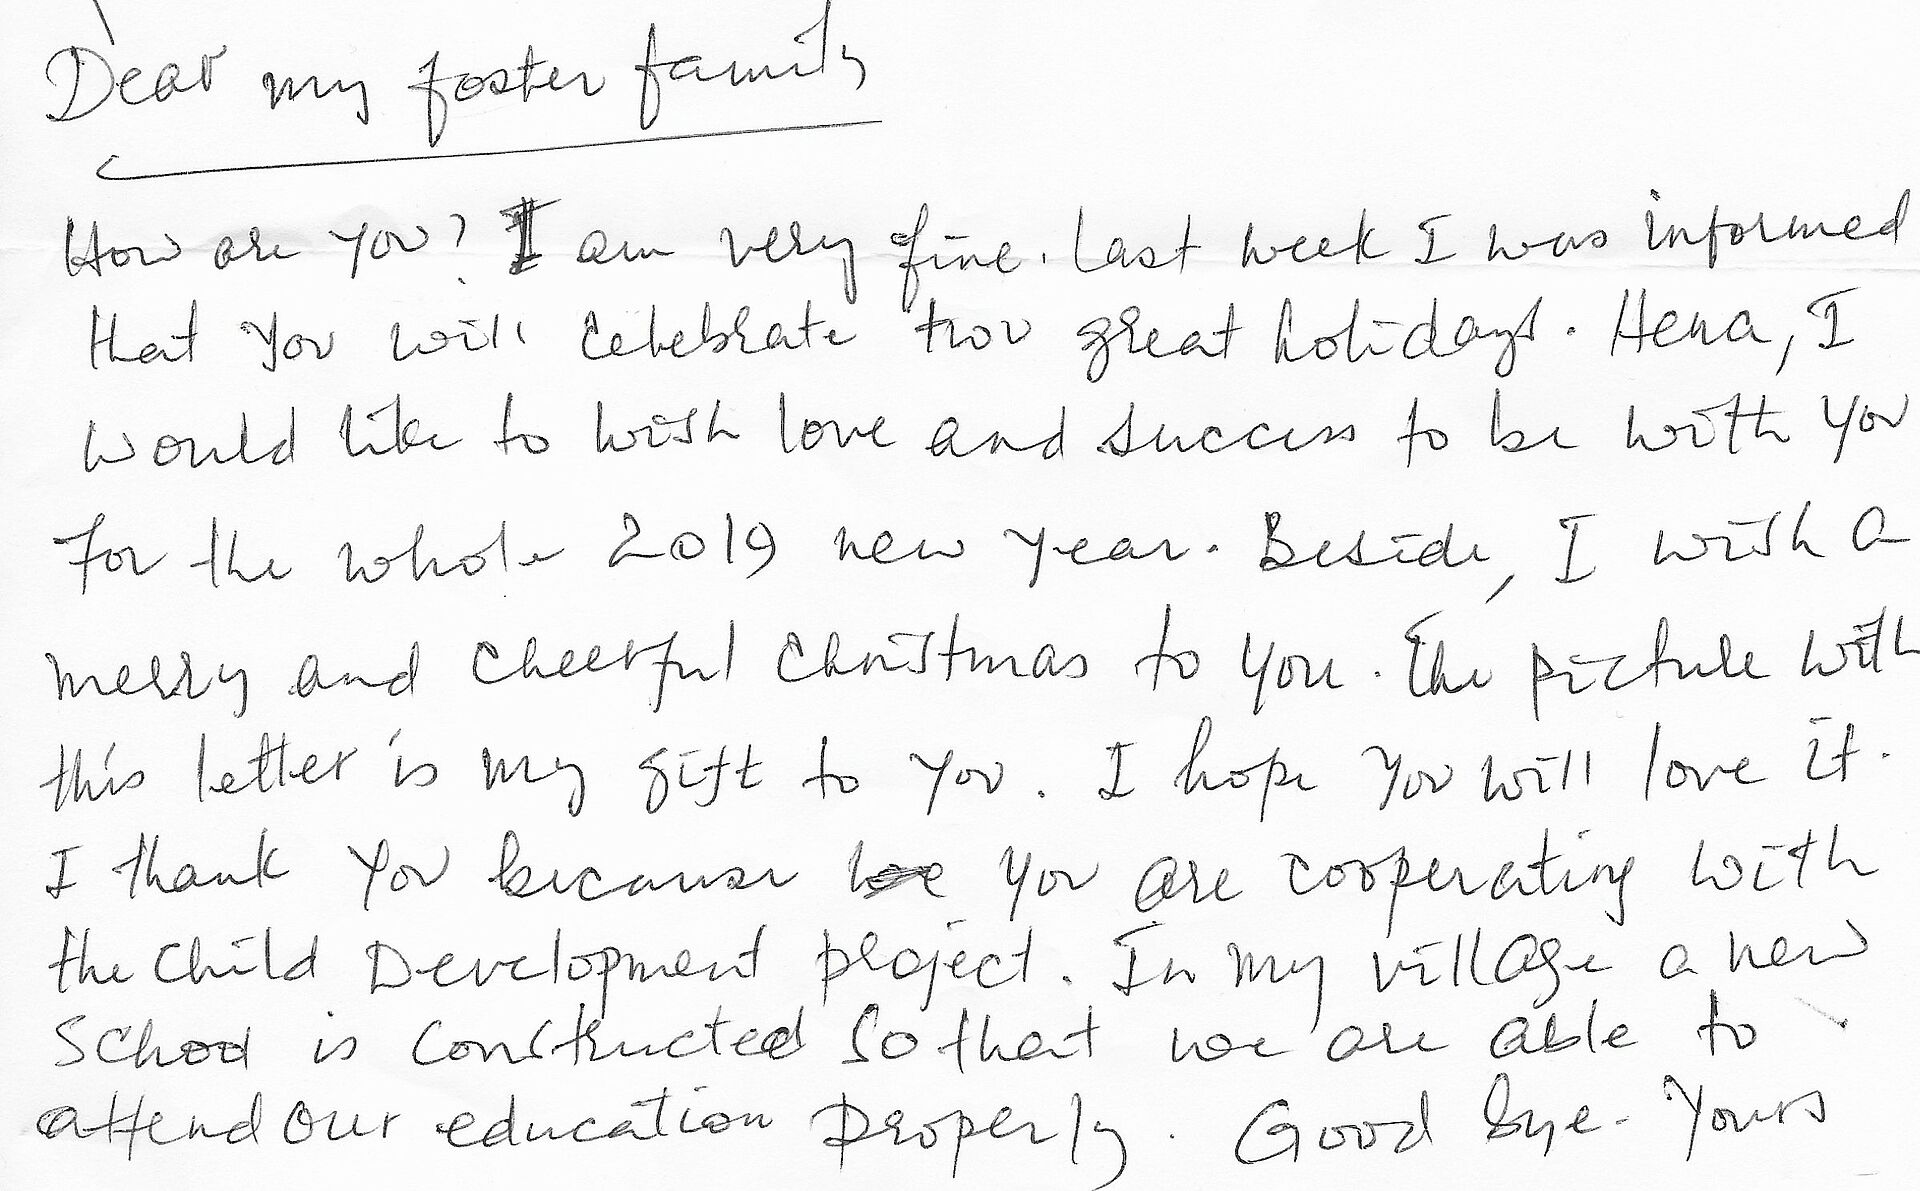 Dear my foster family
How are you? I am very fine. Last week I was informed
that you will celebrate two great holidays. Hena, I
would like to wish love and success to be with you
for the whole 2019 new year. Beside, I wish a
merry and cheerful christmas to you. The picture with
this letter is my gift to you. I hope you will love it.
I thank you because you are cooperating with
the Child Development project. In my village a new
School is constructed so that we are able to
attend our education properly. Good bye. Yours